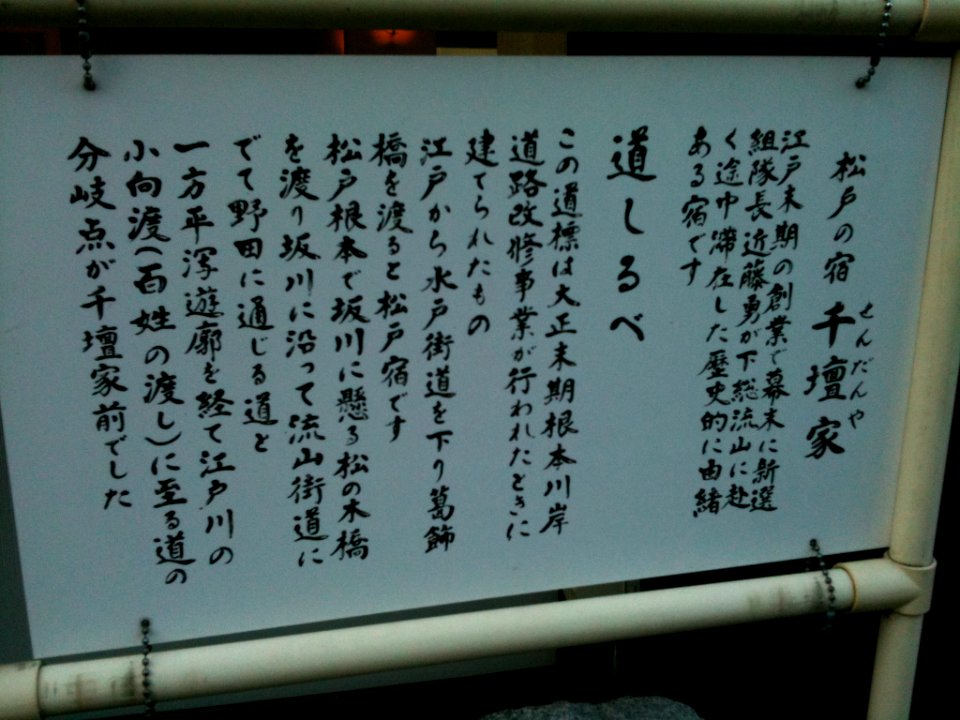 松戸の宿 千壇家
せんだんや
江戸末期の創業で幕末に新選
組隊長近藤勇が下総流山に赴
く途中滞在した歴史的に由緒
ある宿です
道しるべ
この道標は大正末期根本川岸
道路改修事業が行われたときに
建てられたもの
江戸から水戸街道を下り葛飾
橋を渡ると松戸宿です
松戸根本で坂川に懸る松の木橋
を渡り坂川に沿って流山街道に
でて野田に通じる道と
一方平潟遊廓を経て江戸川の
小向渡(百姓の渡し)に至る道の
分岐点が千壇家前でした